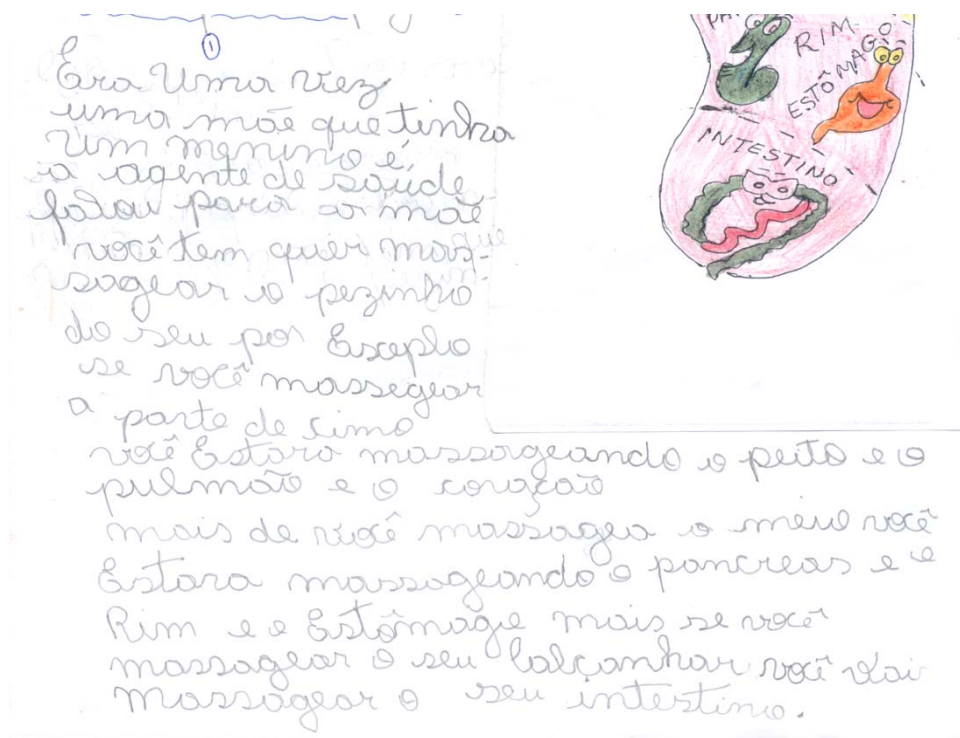 ①
Era Uma vez
uma mãe que tinha
um menino e,
a agente de saúde
falou para a mãe
você tem quer mas-
sagear o pezinho
do seu por Esceplo
se você massegear
a parte de cima
você Estara massageando o peito e o
pulmão e o coração
mais de você massagea o meul você
Estara massageando o pancreas e o
Rim e o Estômago mais se você
massagear o seu calcanhar você vai
massagear o seu intestino.
RIM
ESTÔMAGO
INTESTINO